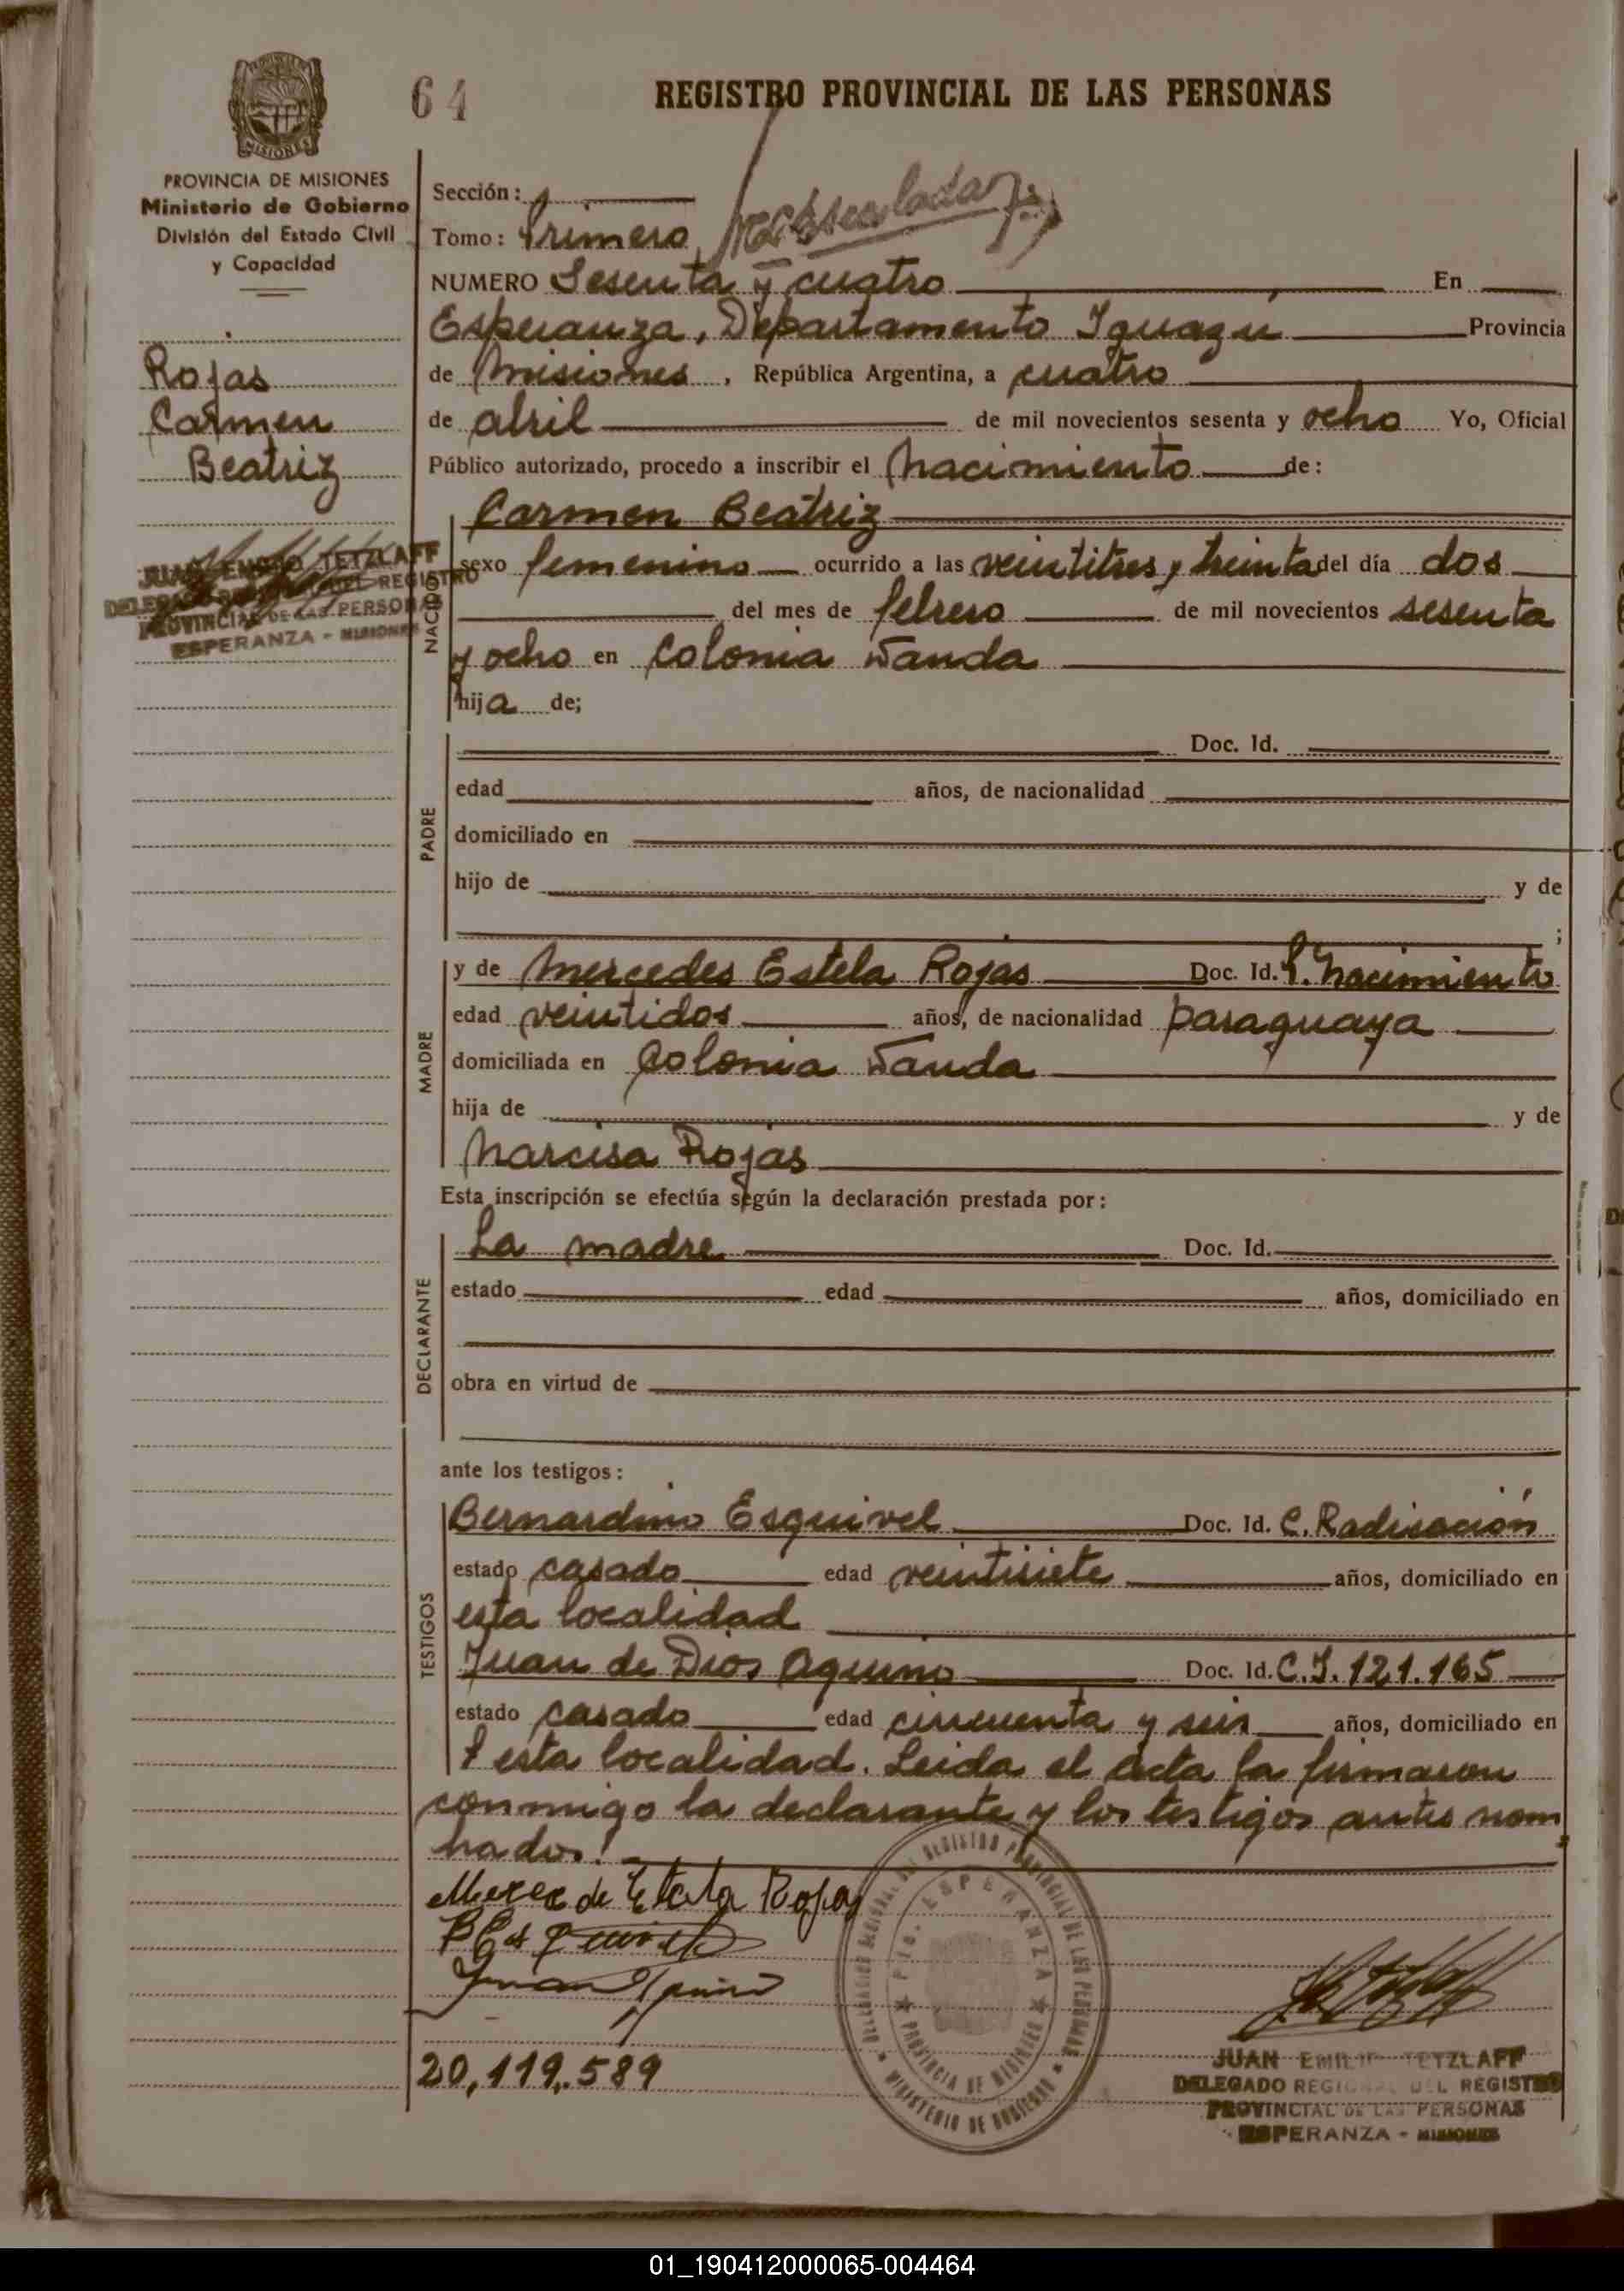 64 REGISTRO PROVINCIAL DE LAS PERSONAS
MISIONES
PROVINCIA DE MISIONES
Ministerio de Gobierno
División del Estado Civil
y Capacidad
Rojas
Carmen
Beatriz
JUAN TETZLAFF
PROVINCIAL DE LAS PERSONAS
ESPERANZA - MISIONES
Sección: 1
Tomo: Primero
NUMERO Sesenta y cuatro En
Esperanza, Departamento Iguazu Provincia
de Misiones, República Argentina, a cuatro
de abril de mil novecientos sesenta y ocho Yo, Oficial
Público autorizado, procedo a inscribir el Nacimiento de:
NACIDO
Carmen Beatriz
sexo femenino ocurrido a las veintitres y treinta del día dos
del mes de febrero de mil novecientos sesenta
y ocho en Colonia Wanda
hija de;
PADRE
Doc. Id.
edad años, de nacionalidad
domiciliado en
hijo de y de
;
MADRE
y de Mercedes Estela Rojas Doc. Id. P. Nacimiento
edad veintidos años, de nacionalidad paraguaya
domiciliada en Colonia Wanda
hija de y de
Narcisa Rojas
Esta inscripción se efectúa según la declaración prestada por:
DECLARANTE
La madre Doc. Id.
estado edad años, domiciliado en
obra en virtud de
ante los testigos:
TESTIGOS
Bernardino Esquivel Doc. Id. C. Radicación
estado casado edad veintisiete años, domiciliado en
esta localidad
Juan de Dios Aquino Doc. Id. C.I. 121.165
estado casado edad cincuenta y seis años, domiciliado en
esta localidad. Leida el acta la firmaron
conmigo la declarante y los testigos antes nom
brados.
Mercede Estela Rojas
Juan Aquino
20,119,589
ESPERANZA
PROVINCIA DE MISIONES
MINISTERIO DE GOBIERNO
JUAN EMILIO TETZLAFF
DELEGADO REGIONAL DEL REGISTRO
PROVINCIAL DE LAS PERSONAS
ESPERANZA - MISIONES
01_190412000065-004464